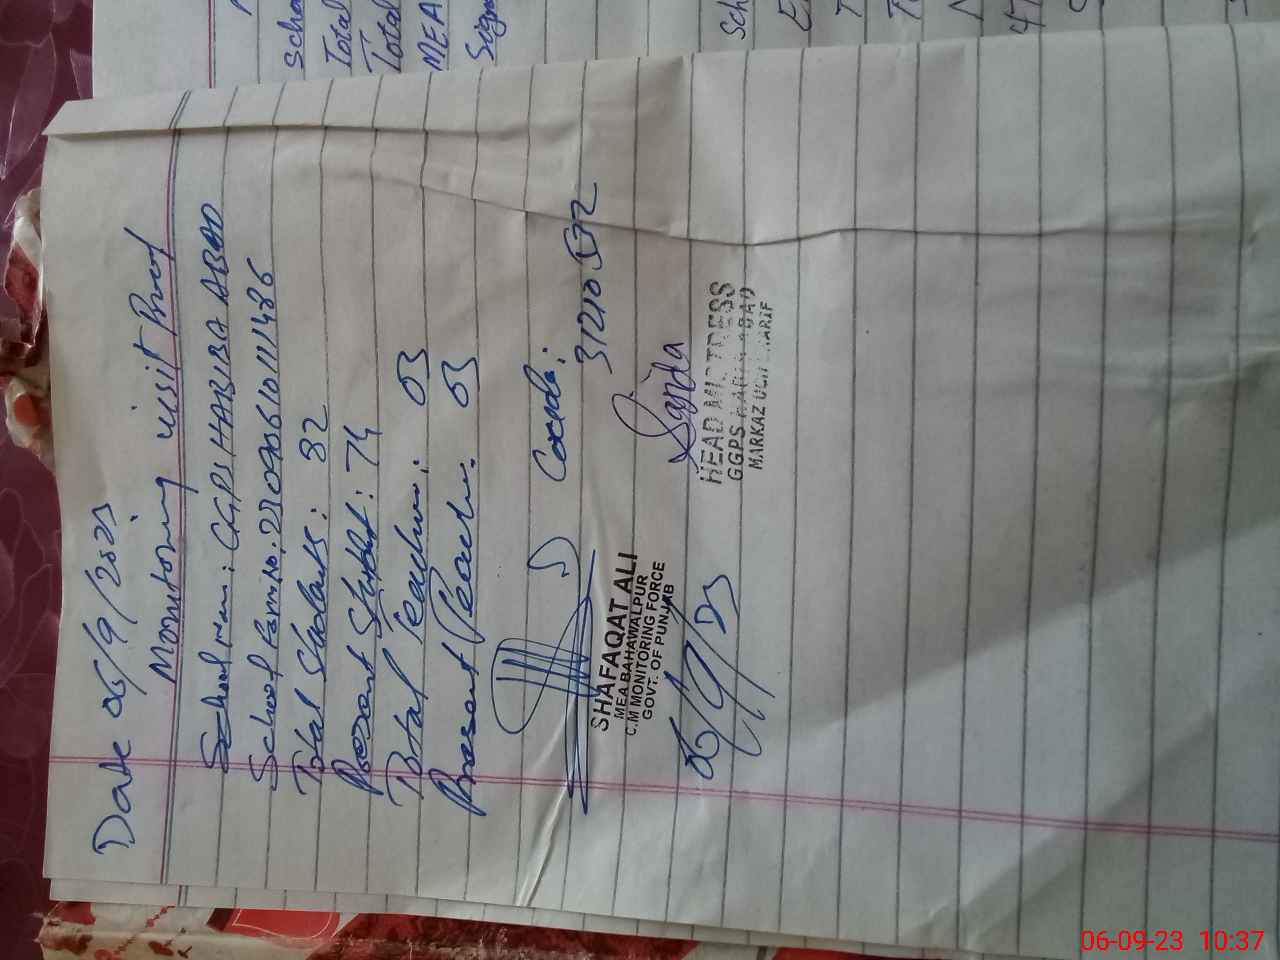 Date 06/9/2023
Monitoring visit Proof
School Nam: GGPS HABIBA ABAD
School Farm No. 2309061011486
Total Students: 82
Present Student: 74
Total Teacher: 03
Present Teacher. 03
Code:
31210572
SHAFAQAT ALI
MEA BAHAWALPUR
C.M MONITORING FORCE
GOVT. OF PUNJAB
06/9/23
Sajda
HEAD MISTRESS
GGPS HABIBA ABAD
MARKAZ UCH SHARIF
Total
Total
MEA
06-09-23 10:37